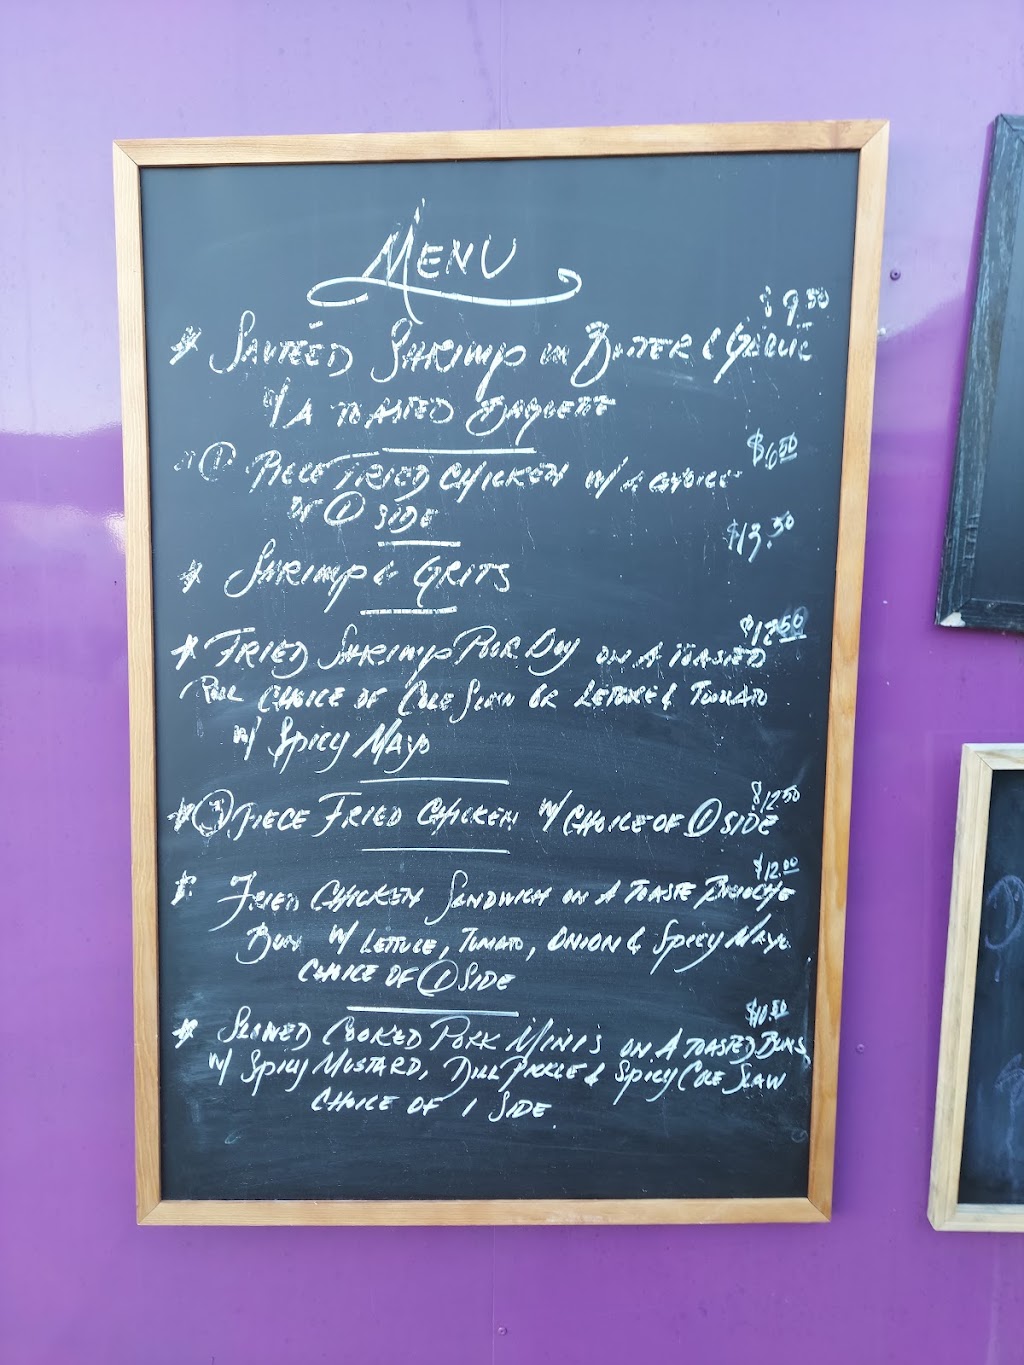 MENU
$9.50
* SAUTEED SHRIMP IN BUTTER & GARLIC
W/ A TOASTED BAGUETTE
$6.50
* 1 PIECE FRIED CHICKEN W/ A CHOICE
OF 1 SIDE
$13.50
* SHRIMP & GRITS
* FRIED SHRIMP POOR BOY ON A TOASTED
ROLL CHOICE OF COLE SLAW OR LETTUCE & TOMATO
W/ SPICY MAYO
$12.50
* 3 PIECE FRIED CHICKEN W/ CHOICE OF 1 SIDE
$12.00
* FRIED CHICKEN SANDWICH ON A TOASTE BRIOCHE
BUN W/ LETTUCE, TOMATO, ONION & SPICY MAYO
CHOICE OF 1 SIDE
$10.50
* SLOWED COOKED PORK MINI'S ON A TOASTED BUNS
W/ SPICY MUSTARD, DILL PICKLE & SPICY COLE SLAW
CHOICE OF 1 SIDE.